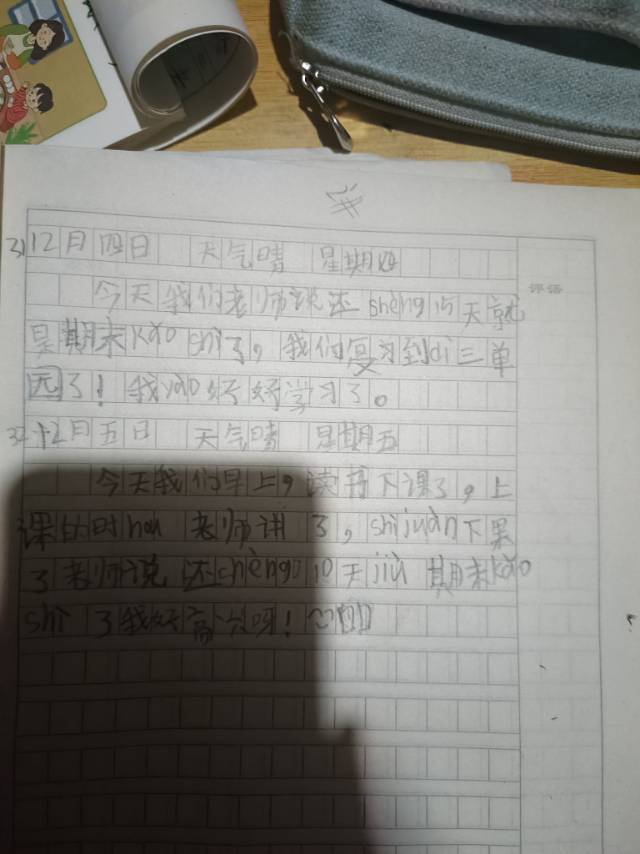 31 12月四日 天气晴 星期四
今天我们老师说还shèng15天就
是期末kǎo shì了，我们复习到dì三单
园了！我yào好好学习了。
32 12月五日 天气晴 星期五
今天我们早上，读书下课了，上
课的时hou 老师讲了，shìjuàn下果
了老师说还shèng10天jiù 期末kǎo
shì了我好高兴呀！
评语